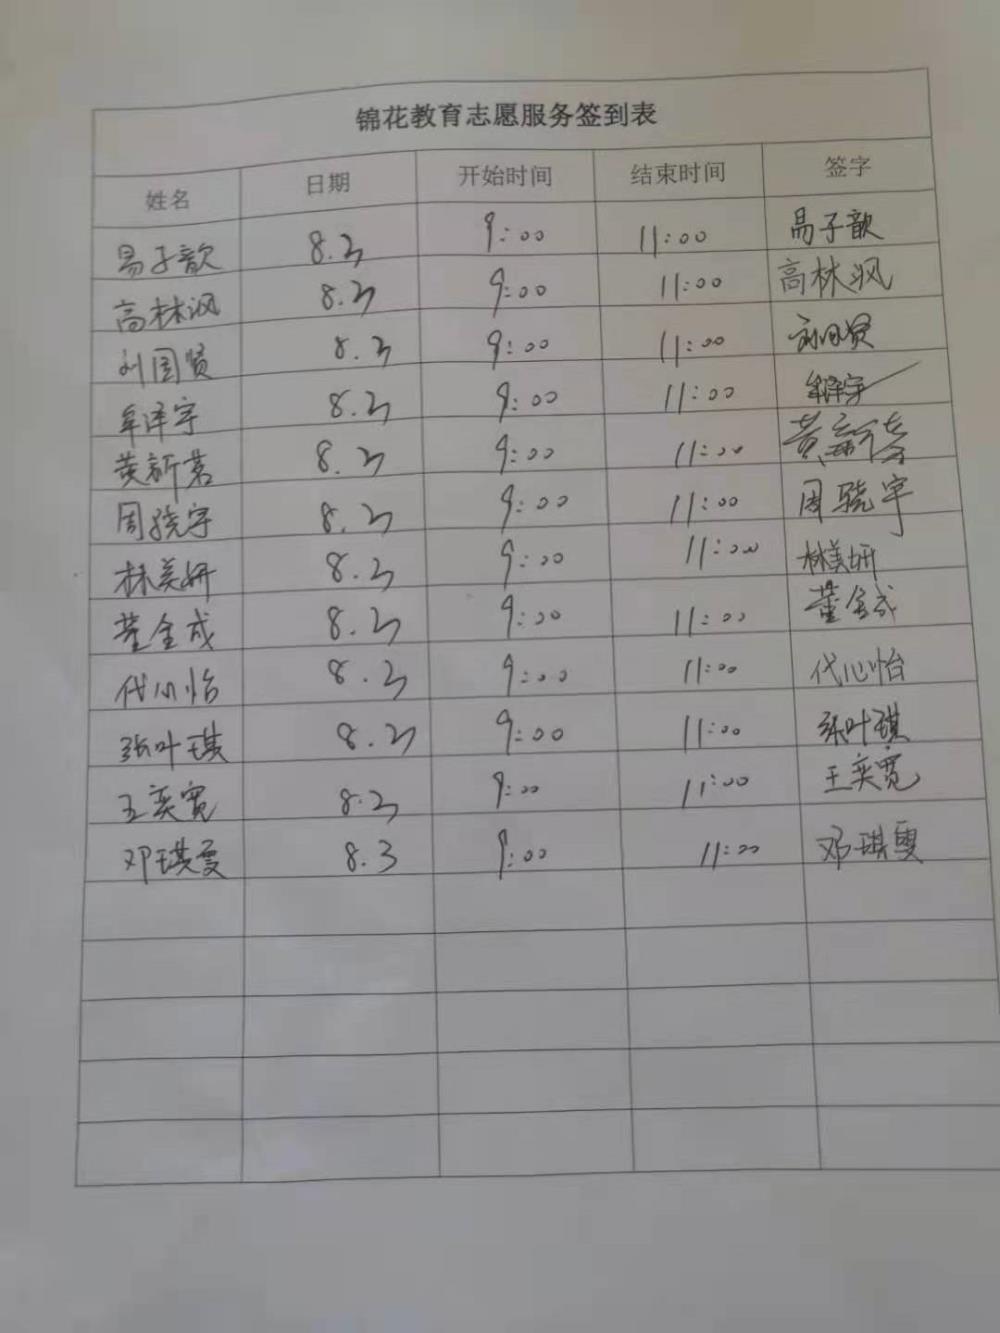 锦花教育志愿服务签到表
姓名 日期 开始时间 结束时间 签字
易子歆 8.3 9:00 11:00 易子歆
高林沨 8.3 9:00 11:00 高林沨
刘国贤 8.3 9:00 11:00 刘国贤
牟泽宇 8.3 9:00 11:00 牟泽宇
黄新茗 8.3 9:00 11:00 黄新茗
周骁宇 8.3 9:00 11:00 周骁宇
林美妍 8.3 9:00 11:00 林美妍
董金成 8.3 9:00 11:00 董金成
代心怡 8.3 9:00 11:00 代心怡
张叶琪 8.3 9:00 11:00 张叶琪
王奕宽 8.3 9:00 11:00 王奕宽
邓琪 8.3 9:00 11:00 邓琪